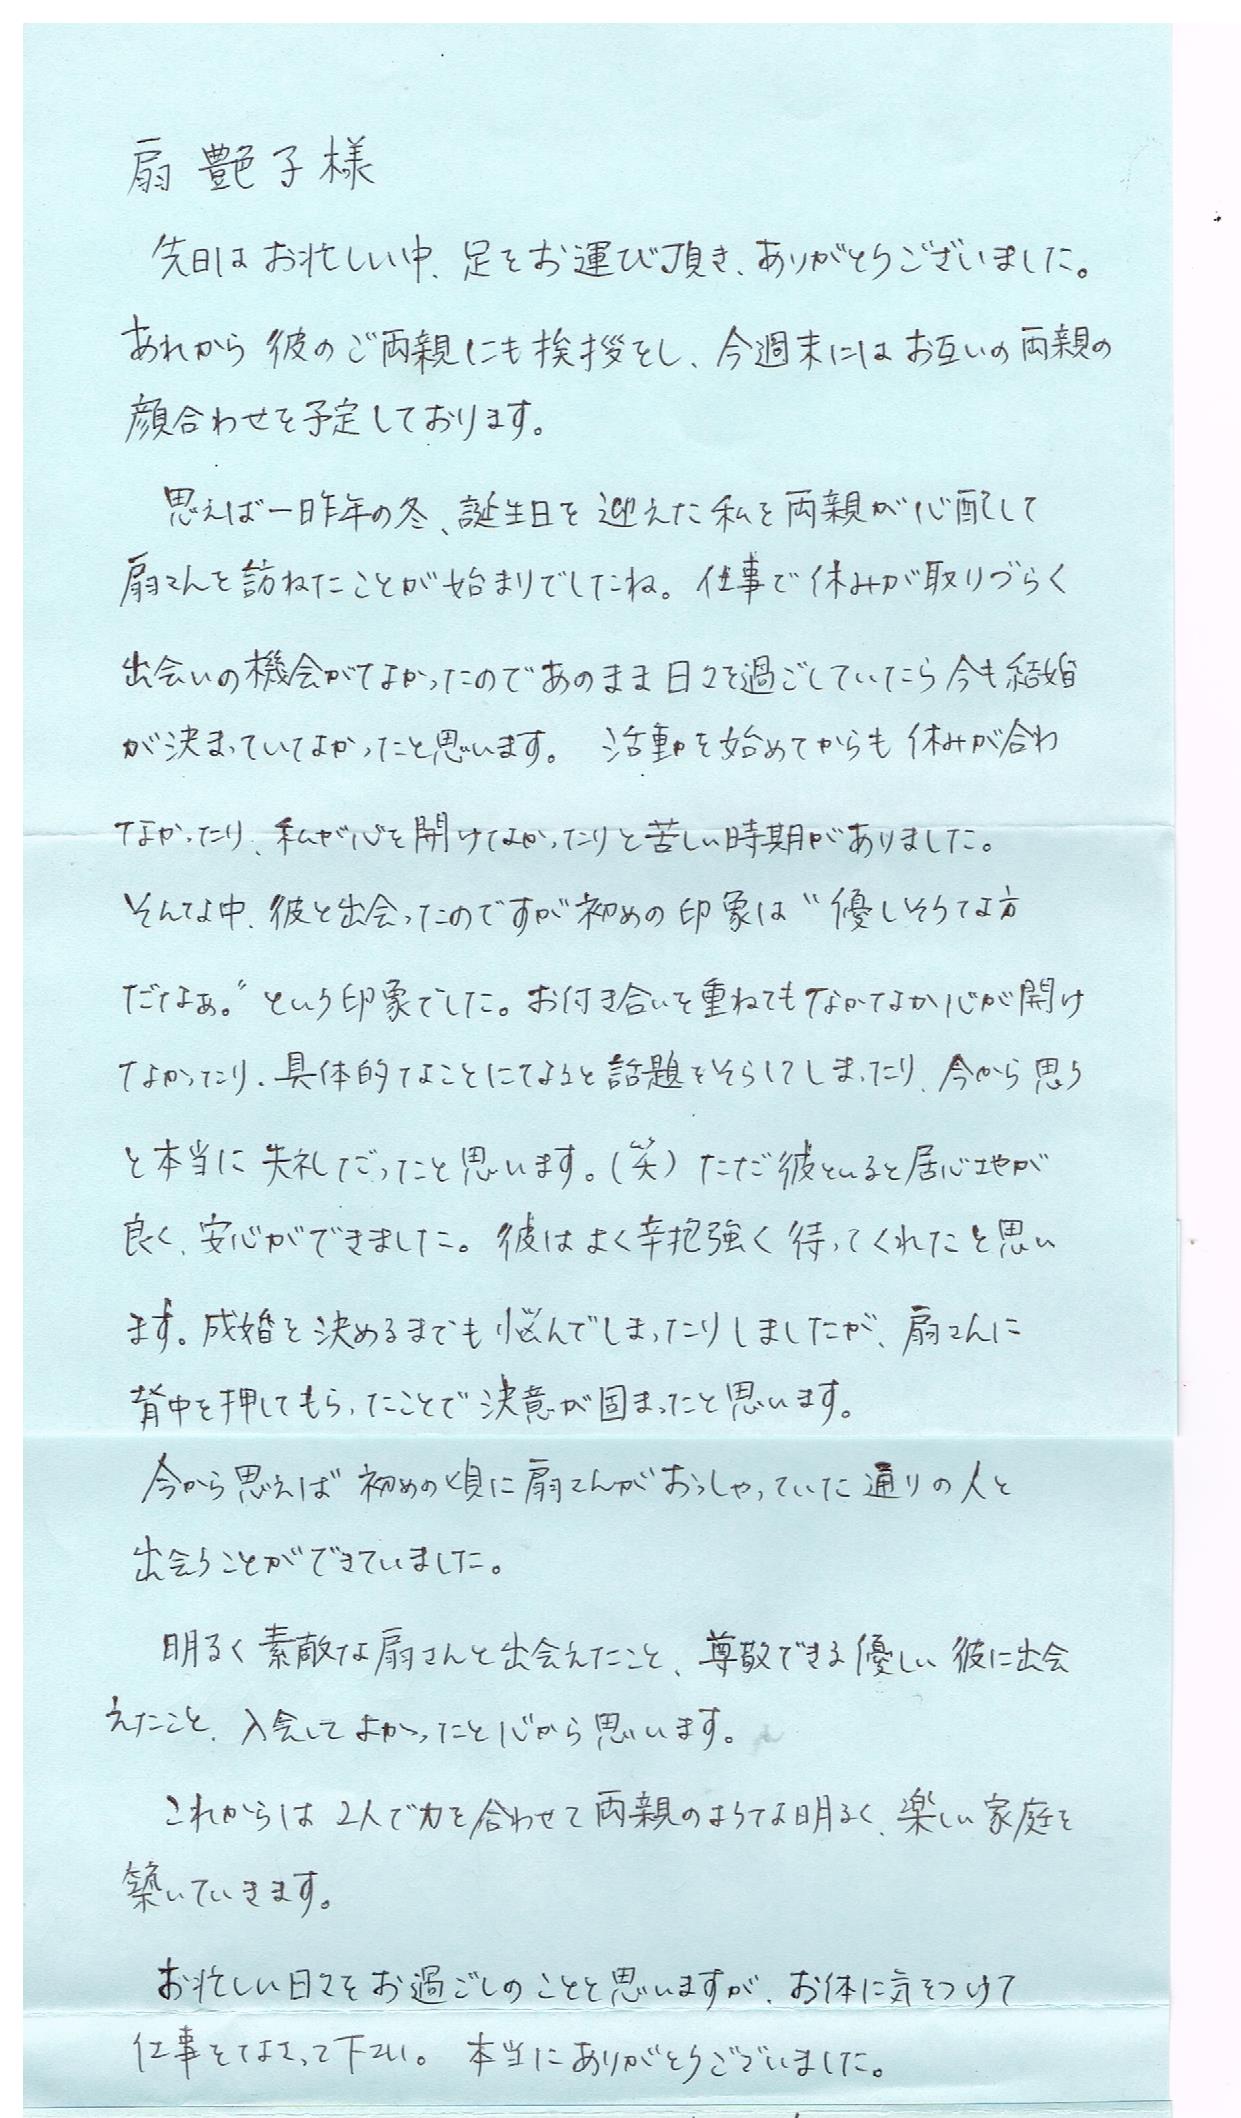 扇 艶子様
先日はお忙しい中、足をお運び頂き、ありがとうございました。
あれから彼のご両親にも挨拶をし、今週末にはお互いの両親の
顔合わせを予定しております。
思えば一昨年の冬、誕生日を迎えた私を両親が心配して
扇さんを訪ねたことが始まりでしたね。仕事で休みが取りづらく
出会いの機会がなかったのであのまま日々を過ごしていたら今も結婚
が決まっていなかったと思います。 活動を始めてからも休みが合わ
なかったり、私が心を開けなかったりと苦しい時期がありました。
そんな中、彼と出会ったのですが初めの印象は〝優しそうな方
だなぁ。〞という印象でした。お付き合いを重ねてもなかなか心が開け
なかったり、具体的なことになると話題をそらしてしまったり、今から思う
と本当に失礼だったと思います。(笑) ただ彼といると居心地が
良く、安心ができました。彼はよく辛抱強く待ってくれたと思い
ます。成婚を決めるまでも悩んでしまったりしましたが、扇さんに
背中を押してもらったことで決意が固まったと思います。
今から思えば初めの頃に扇さんがおっしゃっていた通りの人と
出会うことができていました。
明るく素敵な扇さんと出会えたこと、尊敬できる優しい彼に出会
えたこと、入会してよかったと心から思います。
これからは2人で力を合わせて両親のような明るく、楽しい家庭を
築いていきます。
お忙しい日々をお過ごしのことと思いますが、お体に気をつけて
仕事をなさって下さい。 本当にありがとうございました。